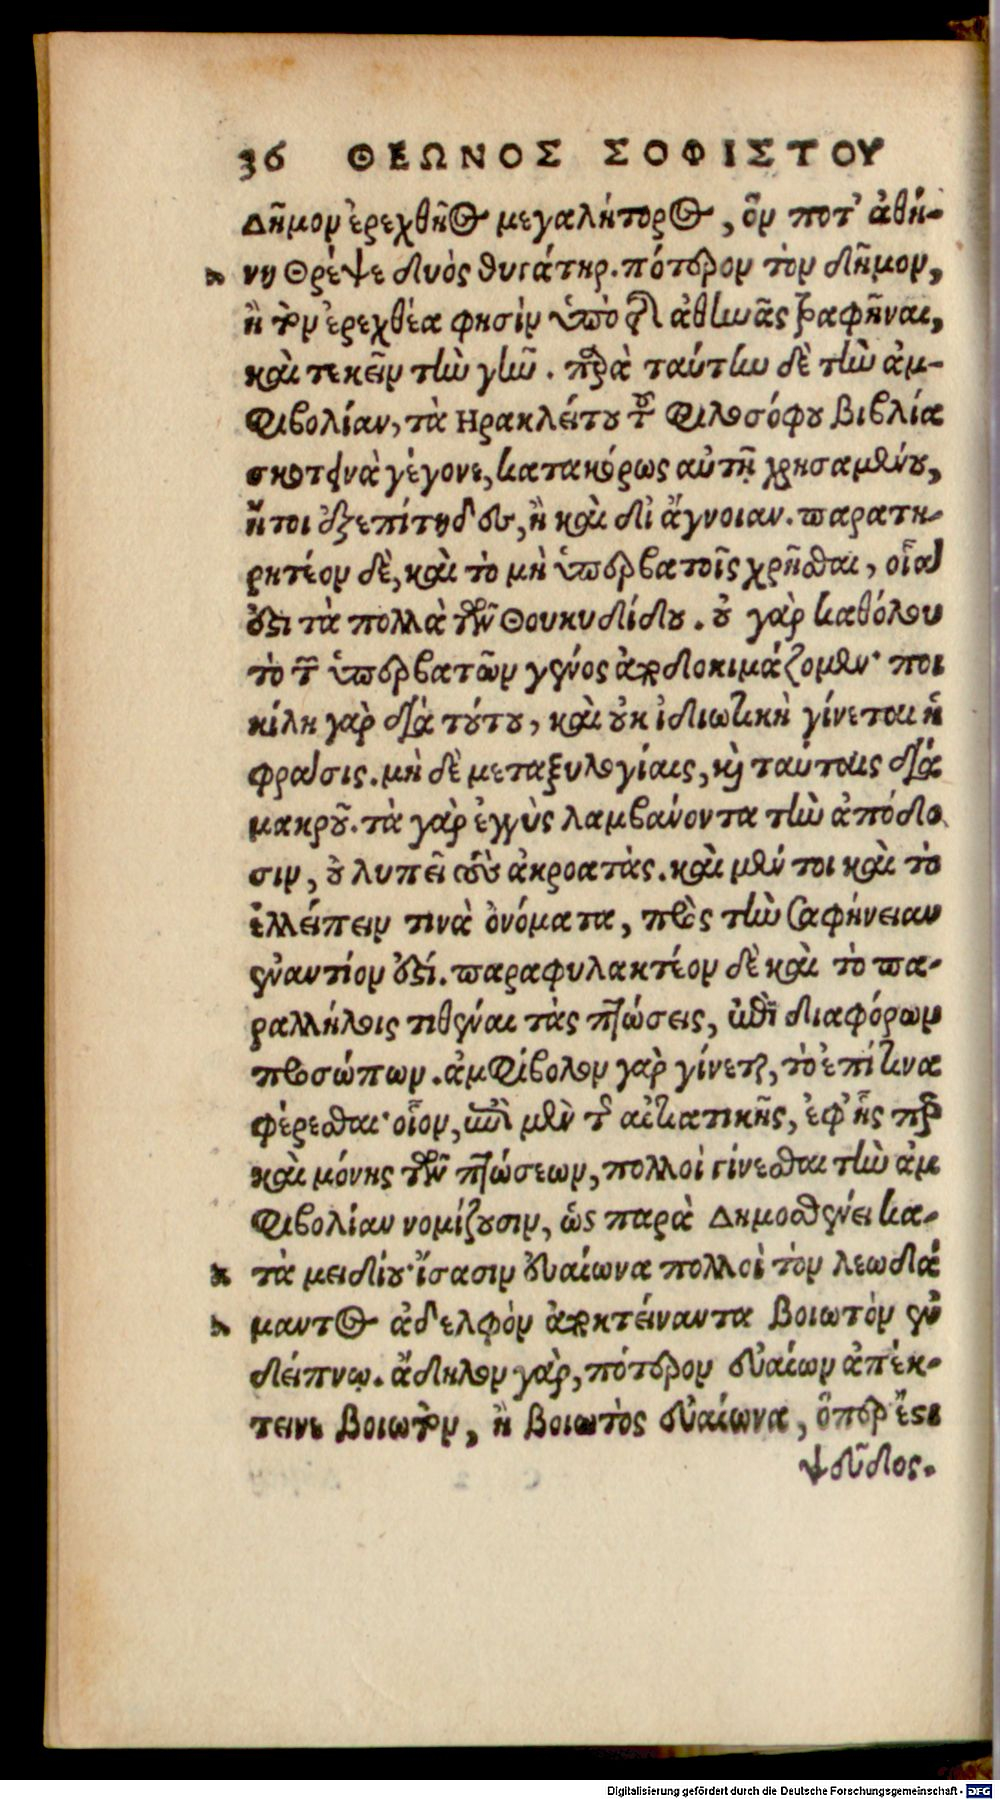 36 ΘΕΩΝΟΣ ΣΟΦΙΣΤΟΥ
Δῆμον ἐρεχθῆος μεγαλήτορος, ὅν ποτ' ἀθή-
νη θρέψε διὸς θυγάτηρ. πότερον τὸν δῆμον,
ἢ τὸν ἐρεχθέα φησὶν ὑπὸ τῆς ἀθηνᾶς τραφῆναι,
καὶ τεκεῖν τὴν γῆν. παρὰ ταύτην δὲ τὴν ἀμ-
φιβολίαν, τὰ Ηρακλείτου τοῦ φιλοσόφου βιβλία
σκοτεινὰ γέγονε, κατακόρως αὐτῇ χρησαμένου,
ἤτοι ἐξεπίτηδες, ἢ καὶ δι' ἄγνοιαν. παρατη-
ρητέον δὲ, καὶ τὸ μὴ ὑπερβατοῖς χρῆσθαι, οἷα
ἐστι τὰ πολλὰ τῶν Θουκυδίδου. οὐ γὰρ καθόλου
τὸ τῶν ὑπερβατῶν γένος ἀποδοκιμάζομεν· ποι
κίλη γὰρ διὰ τούτου, καὶ οὐκ ἰδιωτικὴ γίνεται ἡ
φράσις. μὴ δὲ μεταξυλογίαις, καὶ ταύταις διὰ
μακροῦ. τὰ γὰρ ἐγγὺς λαμβάνοντα τὴν ἀπόδο
σιν, οὐ λυπεῖ τοὺς ἀκροατὰς. καὶ μέν τοι καὶ τὸ
ἐλλείπειν τινὰ ὀνόματα, πρὸς τὴν σαφήνειαν
ἐναντίον ἐστί. παραφυλακτέον δὲ καὶ τὸ πα-
ραλλήλοις τιθέναι τὰς πτώσεις, ἐπὶ διαφόρων
προσώπων. ἀμφίβολον γὰρ γίνεται, τὸ ἐπί τινα
φέρεσθαι· οἷον, ἐπὶ μὲν τῆς αἰτιατικῆς, ἐφ' ἧς περ
καὶ μόνης τῶν πτώσεων, πολλοὶ γίνεσθαι τὴν ἀμ
φιβολίαν νομίζουσιν, ὡς παρὰ Δημοσθένει κα-
τὰ μειδίου· ἴσασιν εὐαίωνα πολλοὶ τὸν λεωδά
μαντος ἀδελφὸν ἀποκτείναντα βοιωτὸν ἐν
δείπνῳ. ἄδηλον γὰρ, πότερον εὐαίων ἀπέκ-
τεινε βοιωτὸν, ἢ βοιωτὸς εὐαίωνα, ὅπερ ἔστι
ψεῦδος.
Digitalisierung gefördert durch die Deutsche Forschungsgemeinschaft - DFG